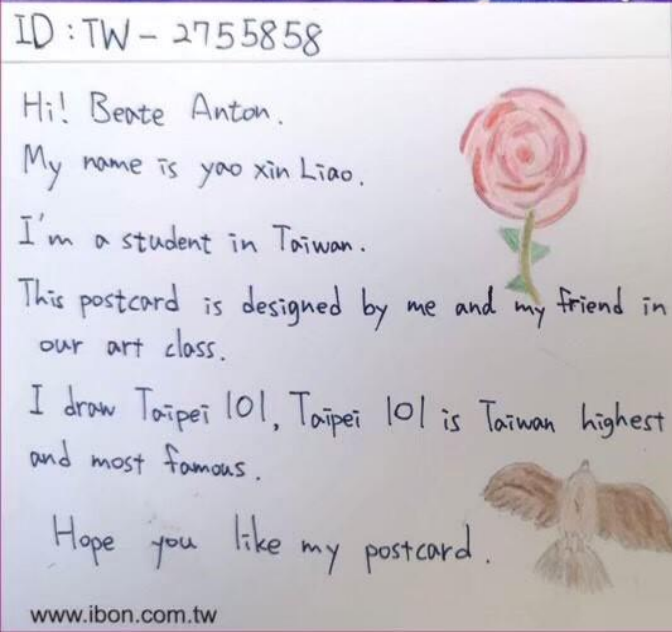 ID : TW - 2755858
Hi! Beate Anton.
My name is yao xin Liao.
I'm a student in Taiwan.
This postcard is designed by me and my friend in
our art class.
I draw Taipei 101, Taipei 101 is Taiwan highest
and most famous.
Hope you like my postcard.
www.ibon.com.tw